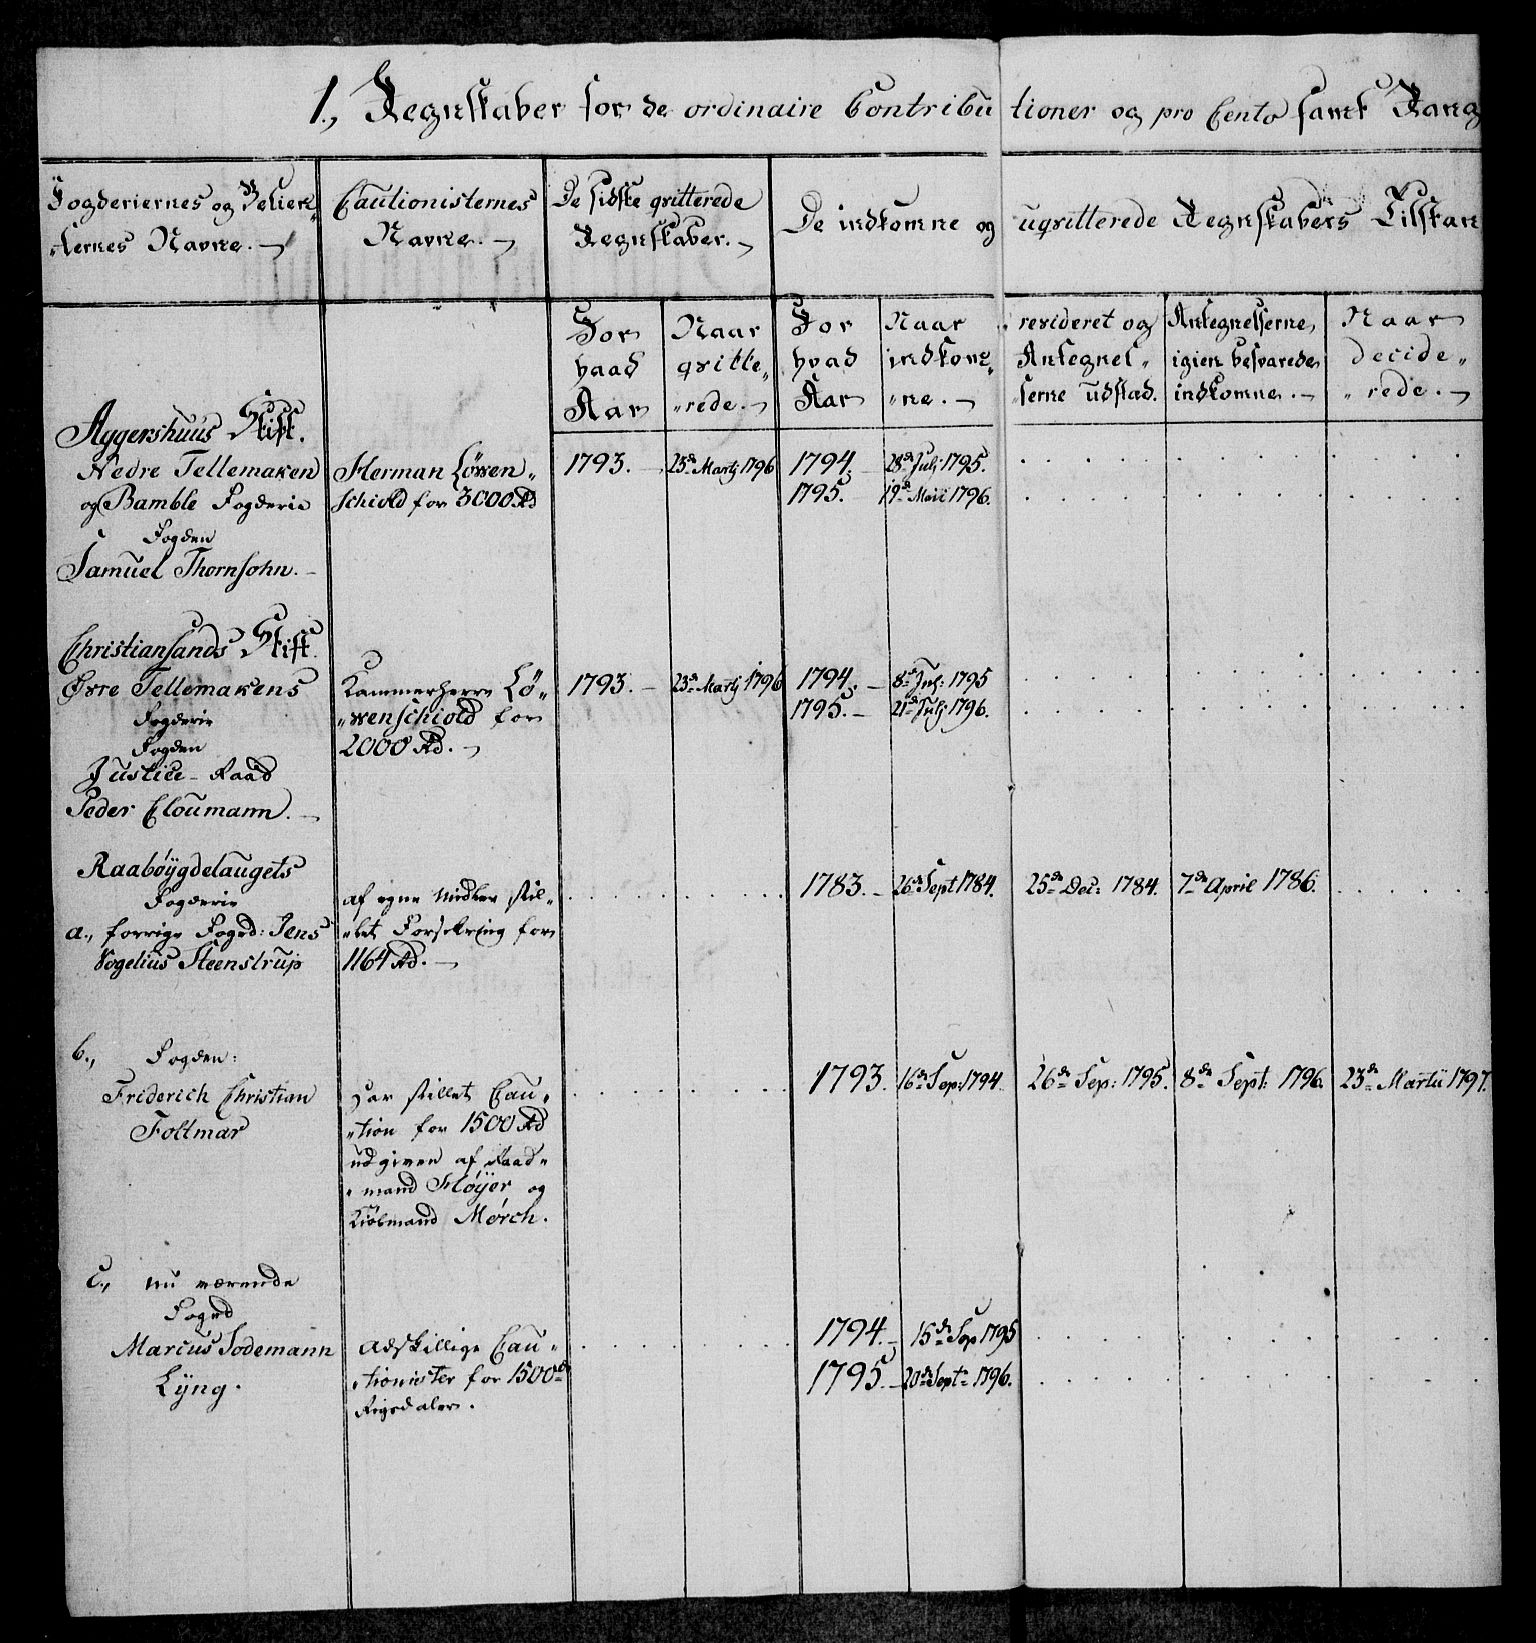 1., Regnskaber for de ordinaire Contributioner og pro Cento samt Rang
Fogderiernes og Betien-
"ternes Navne. -
Cautionisternes
Navne. -
De sidste qvitterede
Regnskaber. -
De indkomne og uqvitterede Regnskabers Tilstan
For
hvad
Aar
Naar
qvitte„
„rede. -
For
hvad
Aar
Naar
indkom„
„ne. -
revideret og
Antegnel„
„serne udstæd.
Antegnelserne
igien besvarede
indkomne. -
Naar
decide„
„rede. -
Aggershuus Stift.
Nedre Tellemaken
og Bamble Fogderie
Fogden
Samuel Thornsohn. -
Herman Løven„
schiold for 3000 Rd
1793. - 23de Martj 1796
1794. - 28de Julj 1795.
1795. - 19de Maii 1796.
Christiansands Stift.
Øvre Tellemakens
Fogderie
Fogden
Justice-Raad
Peder Cloumann. -
Kammerherre Lø„
„venschiold for
2000 Rd. -
1793. - 23de Martj 1796
1794. - 8de Julj: 1795
1795. - 21de Julj 1796.
Raabøÿgdelaugets
Fogderie
a., forrige Foged: Jens
Vogelius Steenstrup
af egne Midler stil„
„let Forsikring for
1164 Rd. -
1783. - 26de Sept 1784. 25de Dec: 1784. 7de April 1786.
b., Fogden:
Friderich Christian
Foltmar
har stillet Cau„
„tion for 1500 Rd
udgiven af Raad„
„mand Fløÿer og
Kiøbmand Mørch.
1793. 16de Sep: 1794. 26de Sep: 1795. 8de Sept: 1796. 23de Martii 1797.
c., nu værende
Foged
Marcus Todemann
Lÿng.
adskillige Cau„
„tionister for 1500de
Rigsdaler.
1794. - 15de Sep 1795
1795. - 20de Septr 1796.